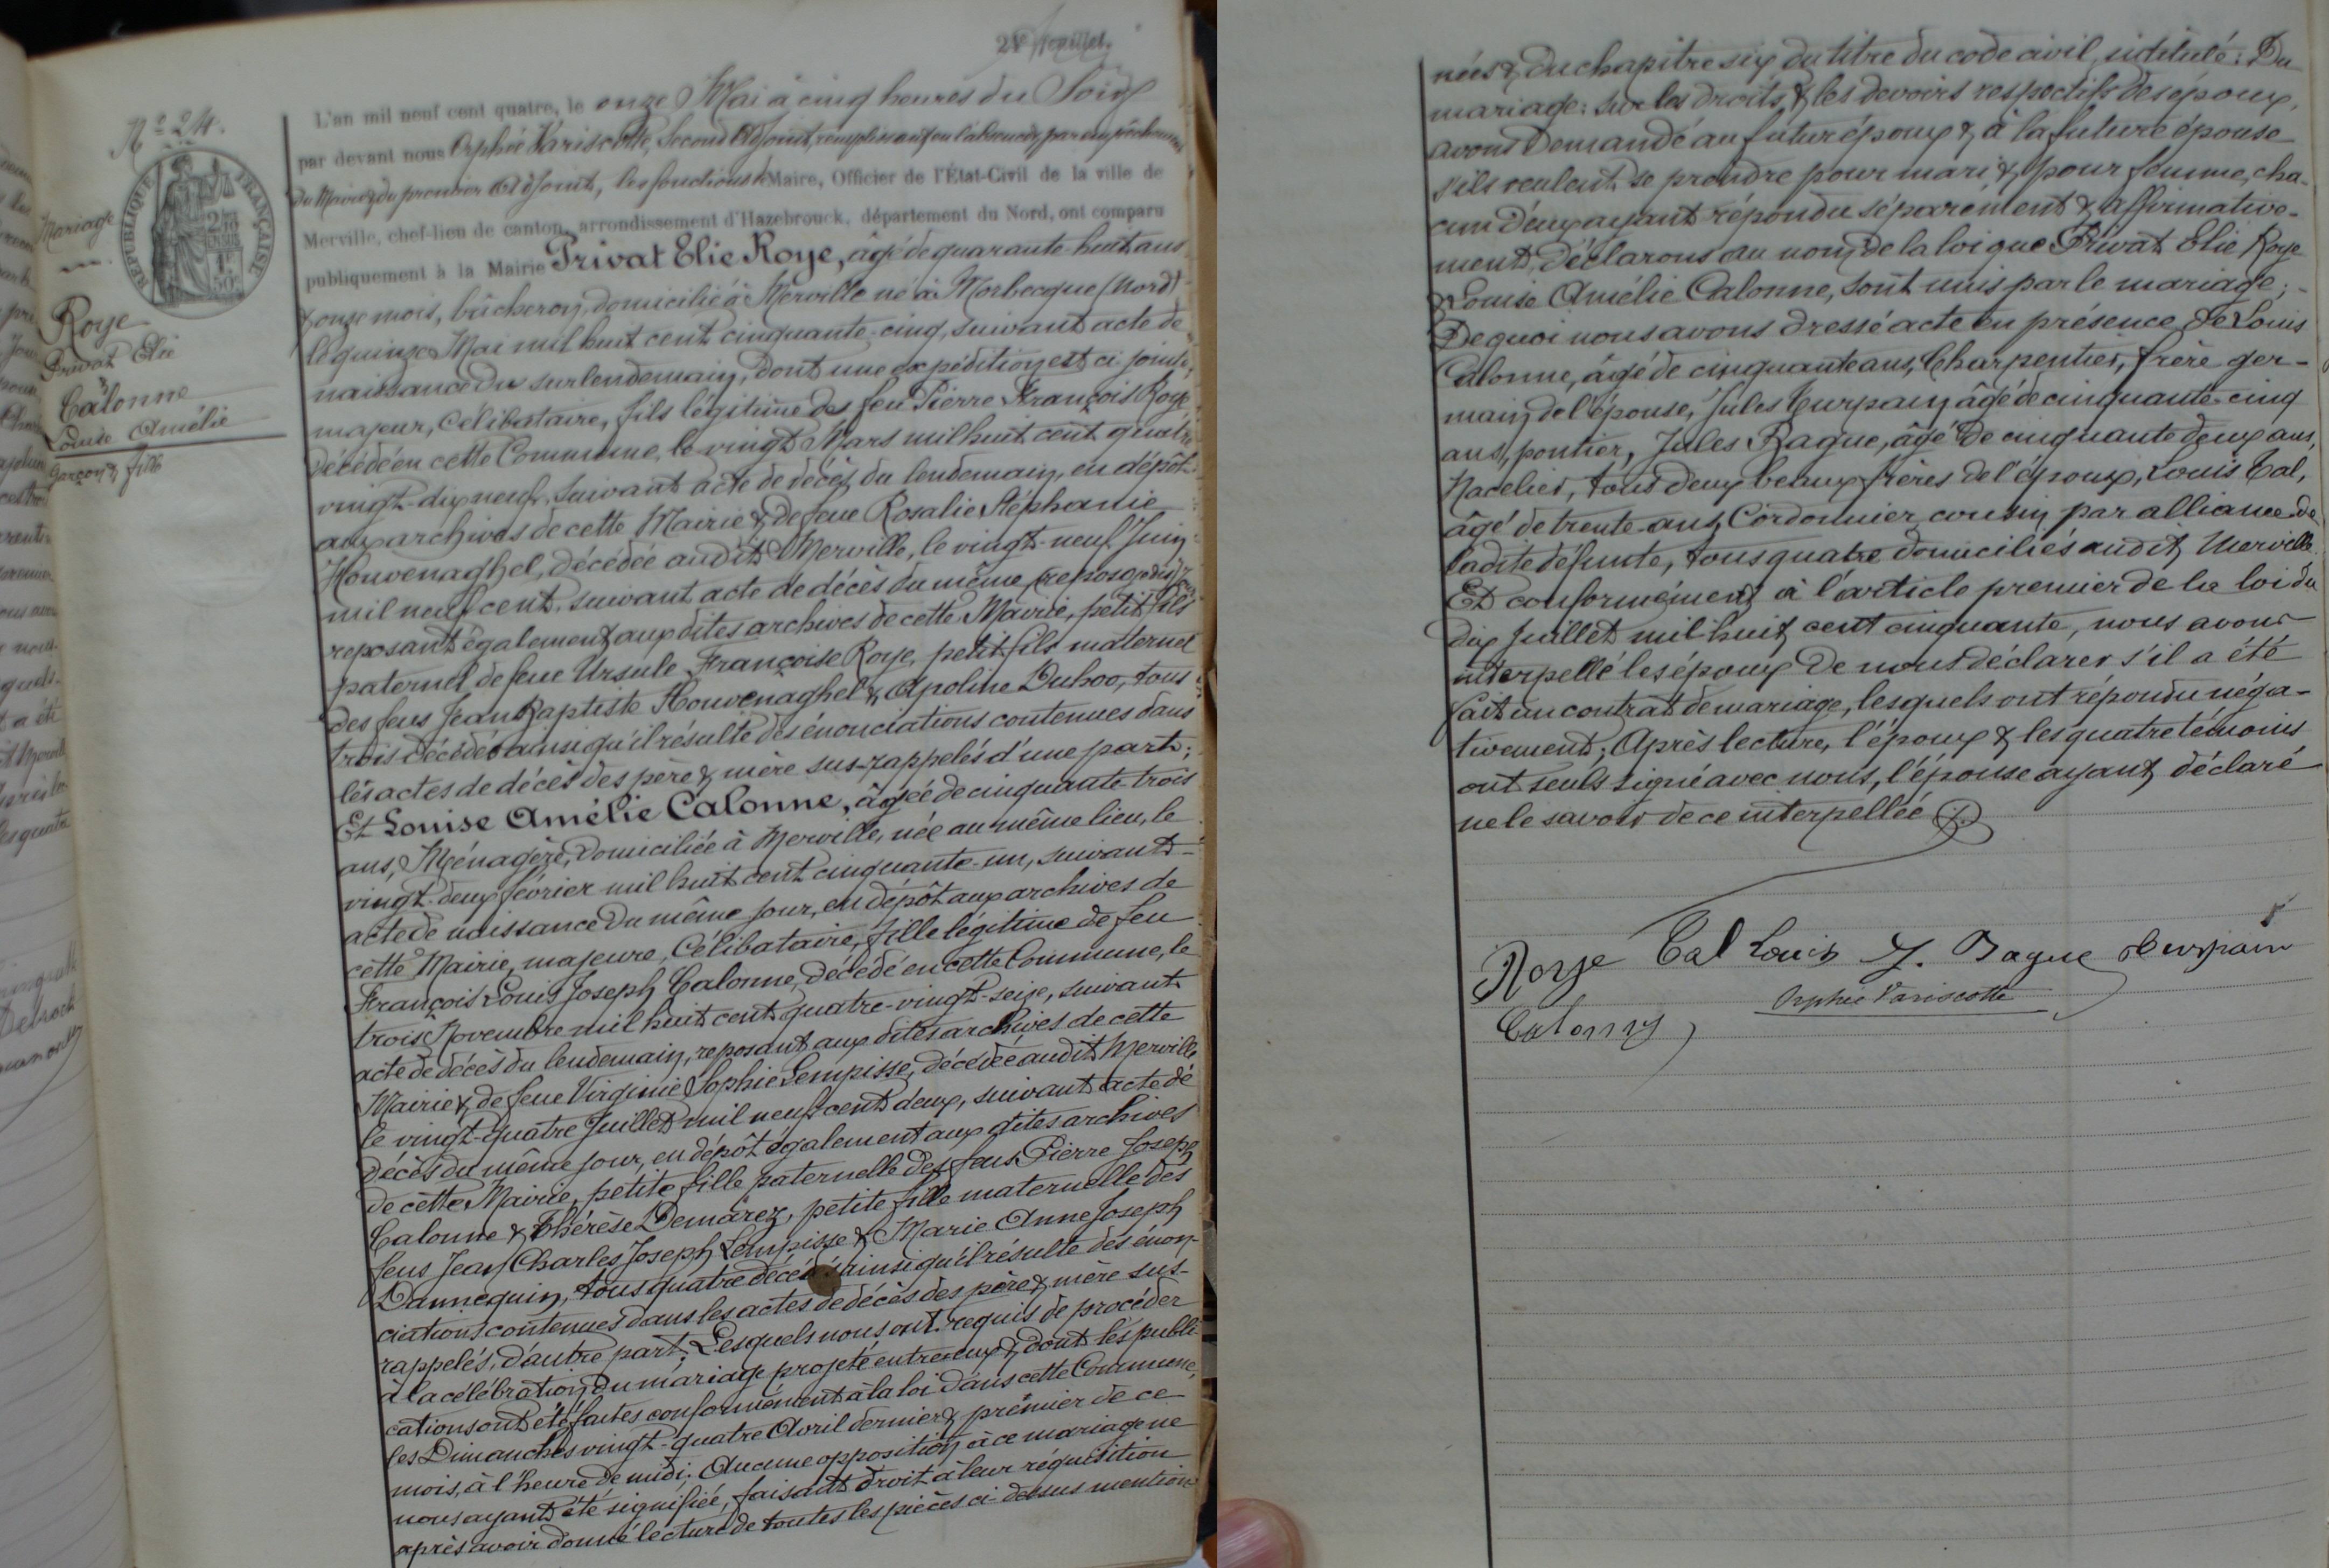 21e feuillet.
N° 24.
Mariage
REPUBLIQUE FRANÇAISE
Roye
Privat Elie
&
Calonne
Louise Amélie
Garçon & fille
L'an mil neuf cent quatre, le onze Mai à cinq heures du Soir
par devant nous Orphée Variscotte, Second Adjoint, remplissant en l'absence & par empêchement
du Maire & du premier Adjoint, les fonctions de Maire, Officier de l'État-Civil de la ville de
Merville, chef-lieu de canton, arrondissement d'Hazebrouck, département du Nord, ont comparu
publiquement à la Mairie Privat Elie Roye, âgé de quarante-huit ans
& onze mois, bûcheron, domicilié à Merville né à Morbecque (Nord)
le quinze Mai mil huit cent cinquante-cinq, suivant acte de
naissance du surlendemain, dont une expédition est ci jointe,
majeur, célibataire, fils légitime des feu Pierre François Roye,
décédé en cette Commune, le vingt Mars mil huit cent quatre
vingt-dix neuf, suivant acte de décès du lendemain, en dépôt
aux archives de cette Mairie & de feue Rosalie Stéphanie
Houvenaghel, décédée audit Merville, le vingt-neuf Juin
mil neuf cent, suivant acte de décès du même jour
reposant également aux dites archives de cette Mairie, petit fils
paternel de feue Ursule Françoise Roye, petit fils maternel
des feus Jean Baptiste Houvenaghel & Apoline Duhoo, tous
trois décédés ainsi qu'il résulte des énonciations contenues dans
les actes de décès des père & mère sus-rappelés d'une part;
Et Louise Amélie Calonne, âgée de cinquante-trois
ans, Ménagère, domiciliée à Merville, née au même lieu, le
vingt-deux février mil huit cent cinquante-un, suivant
acte de naissance du même jour, en dépôt aux archives de
cette Mairie, majeure, célibataire, fille légitime de feu
François Louis Joseph Calonne, décédé en cette Commune, le
trois Novembre mil huit cent quatre-vingt-seize, suivant
acte de décès du lendemain, reposant aux dites archives de cette
Mairie & de feue Virginie Sophie Lempisse, décédée audit Merville,
le vingt-quatre Juillet mil neuf cent deux, suivant acte de
décès du même jour, en dépôt également aux dites archives
de cette Mairie, petite fille paternelle des feus Pierre Joseph
Calonne & Thérèse Demarez, petite fille maternelle des
feus Jean Charles Joseph Lempisse & Marie Anne Joseph
Dannequin, tous quatre décédés ainsi qu'il résulte des énon-
ciations contenues dans les actes de décès des père & mère sus-
rappelés, d'autre part; Lesquels nous ont requis de procéder
à la célébration du mariage projeté entre eux & dont les publi-
cations ont été faites conformément à la loi dans cette Commune,
les Dimanches vingt-quatre Avril dernier & premier de ce
mois, à l'heure de midi; Aucune opposition à ce mariage ne
nous ayant été signifiée, faisant droit à leur réquisition
après avoir donné lecture de toutes les pièces ci-dessus mention-
nées & du chapitre six du titre du code civil, intitulé: Du
mariage: sur les droits & les devoirs respectifs des époux,
avons demandé au futur époux & à la future épouse
s'ils veulent se prendre pour mari & pour femme, cha-
cun d'eux ayant répondu séparément & affirmative-
ment, déclarons au nom de la loi que Privat Elie Roye
& Louise Amélie Calonne, sont unis par le mariage;
De quoi nous avons dressé acte en présence de Louis
Calonne, âgé de cinquante ans, Charpentier, frère ger-
main de l'épouse, Jules Curpain âgé de cinquante-cinq
ans, pontier, Jules Bague, âgé de cinquante deux ans,
Bacelier, tous deux beaux frères de l'époux, Louis Cal,
âgé de trente-ans, Cordonnier cousin par alliance de
ladite défunte, tous quatre domiciliés audit Merville.
Et conformément à l'article premier de la loi du
dix Juillet mil huit cent cinquante, nous avons
interpellé les époux de nous déclarer s'il a été
fait un contrat de mariage, lesquels ont répondu néga-
tivement; Après lecture, l'époux & les quatre témoins
ont seuls signé avec nous, l'épouse ayant déclaré
ne le savoir de ce interpellée
Roye Cal Louis J. Bague Curpain
Orphée Variscotte
Calonny